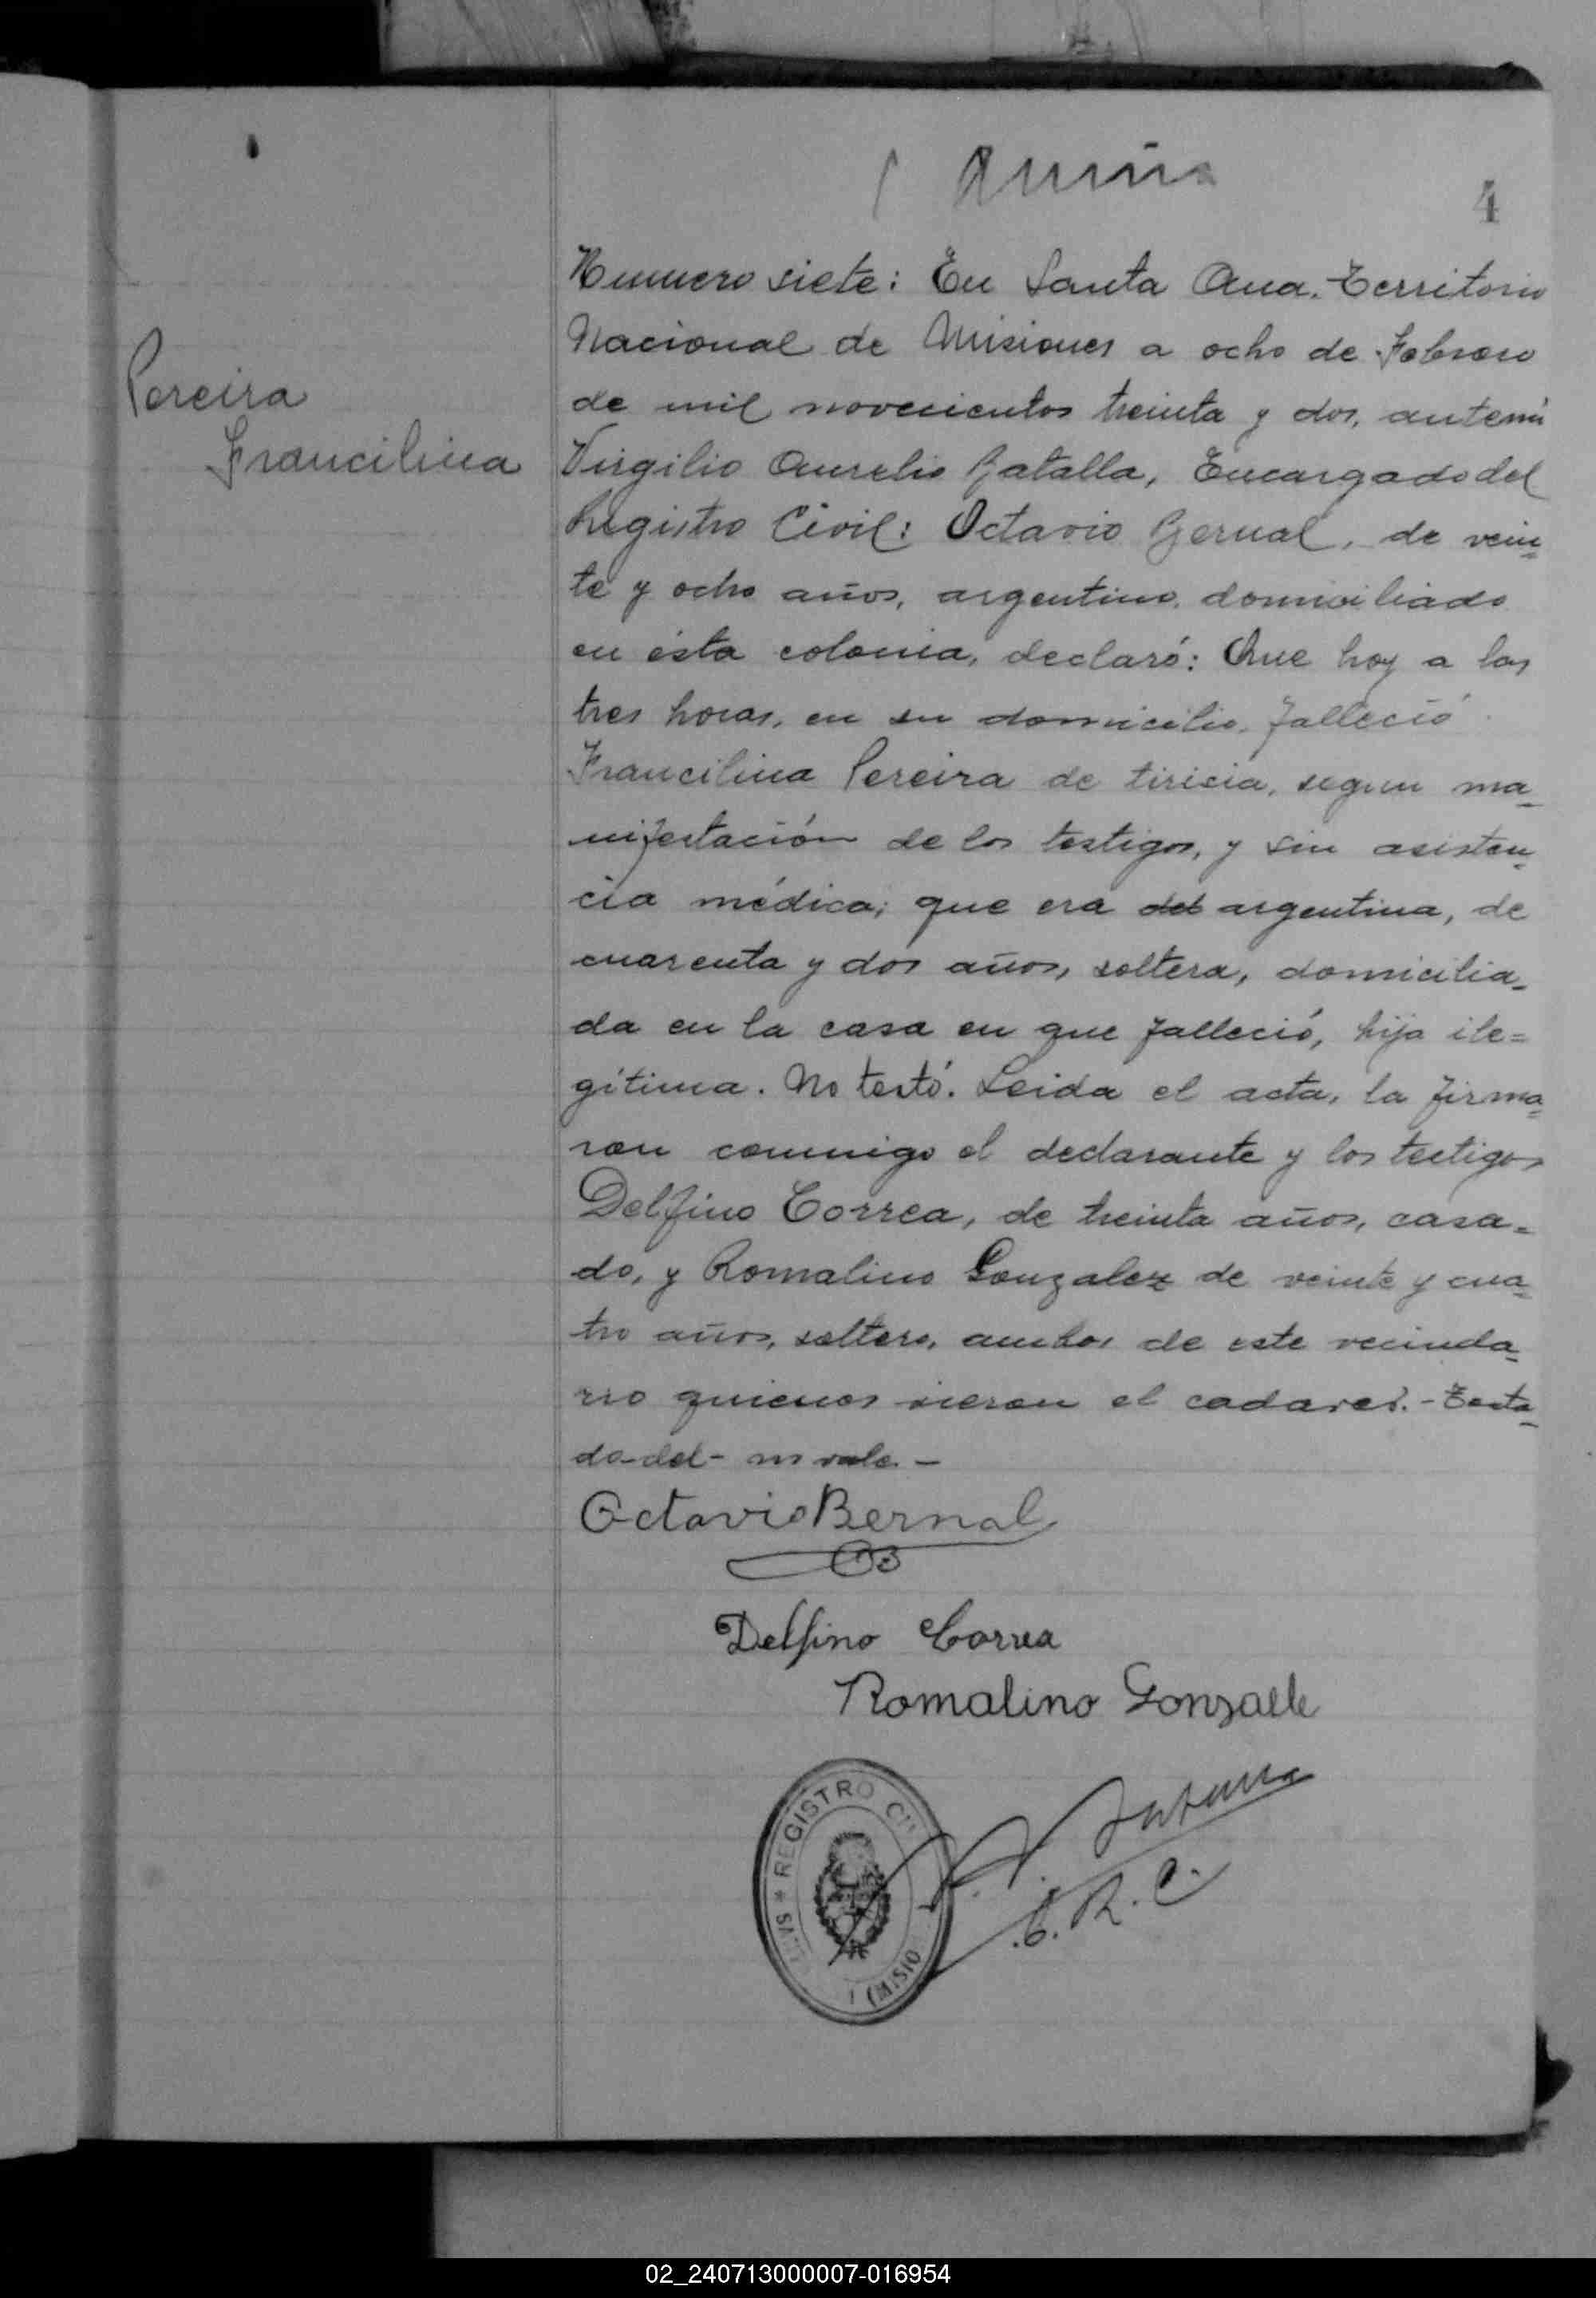 4
Pereira
Francilina
Numero siete: En Santa Ana. Territorio
Nacional de Misiones a ocho de Febrero
de mil novecientos treinta y dos, ante mi
Virgilio Aurelio Batalla, Encargado del
Registro Civil: Octavio Bernal, de vein=
te y ocho años, argentino, domiciliado
en ésta colonia, declaró: Que hoy a las
tres horas, en su domicilio, falleció
Francilina Pereira de tiricia, segun ma-
nifestación de los testigos, y sin asisten=
cia médica; que era del argentina, de
cuarenta y dos años, soltera, domicilia-
da en la casa en que falleció, hija ile=
gítima. No testó. Leida el acta, la firma=
ron conmigo el declarante y los testigos
Delfino Correa, de treinta años, casa-
do, y Romalino Gonzalez de veinte y cua=
tro años, soltero, ambos de este vecinda=
rio quienes vieron el cadaver. - Testa-
do-del- no vale. -
Octavio Bernal
OB
Delfino Correa
Romalino Gonzalle
REGISTRO
E. R. C.
02_240713000007-016954